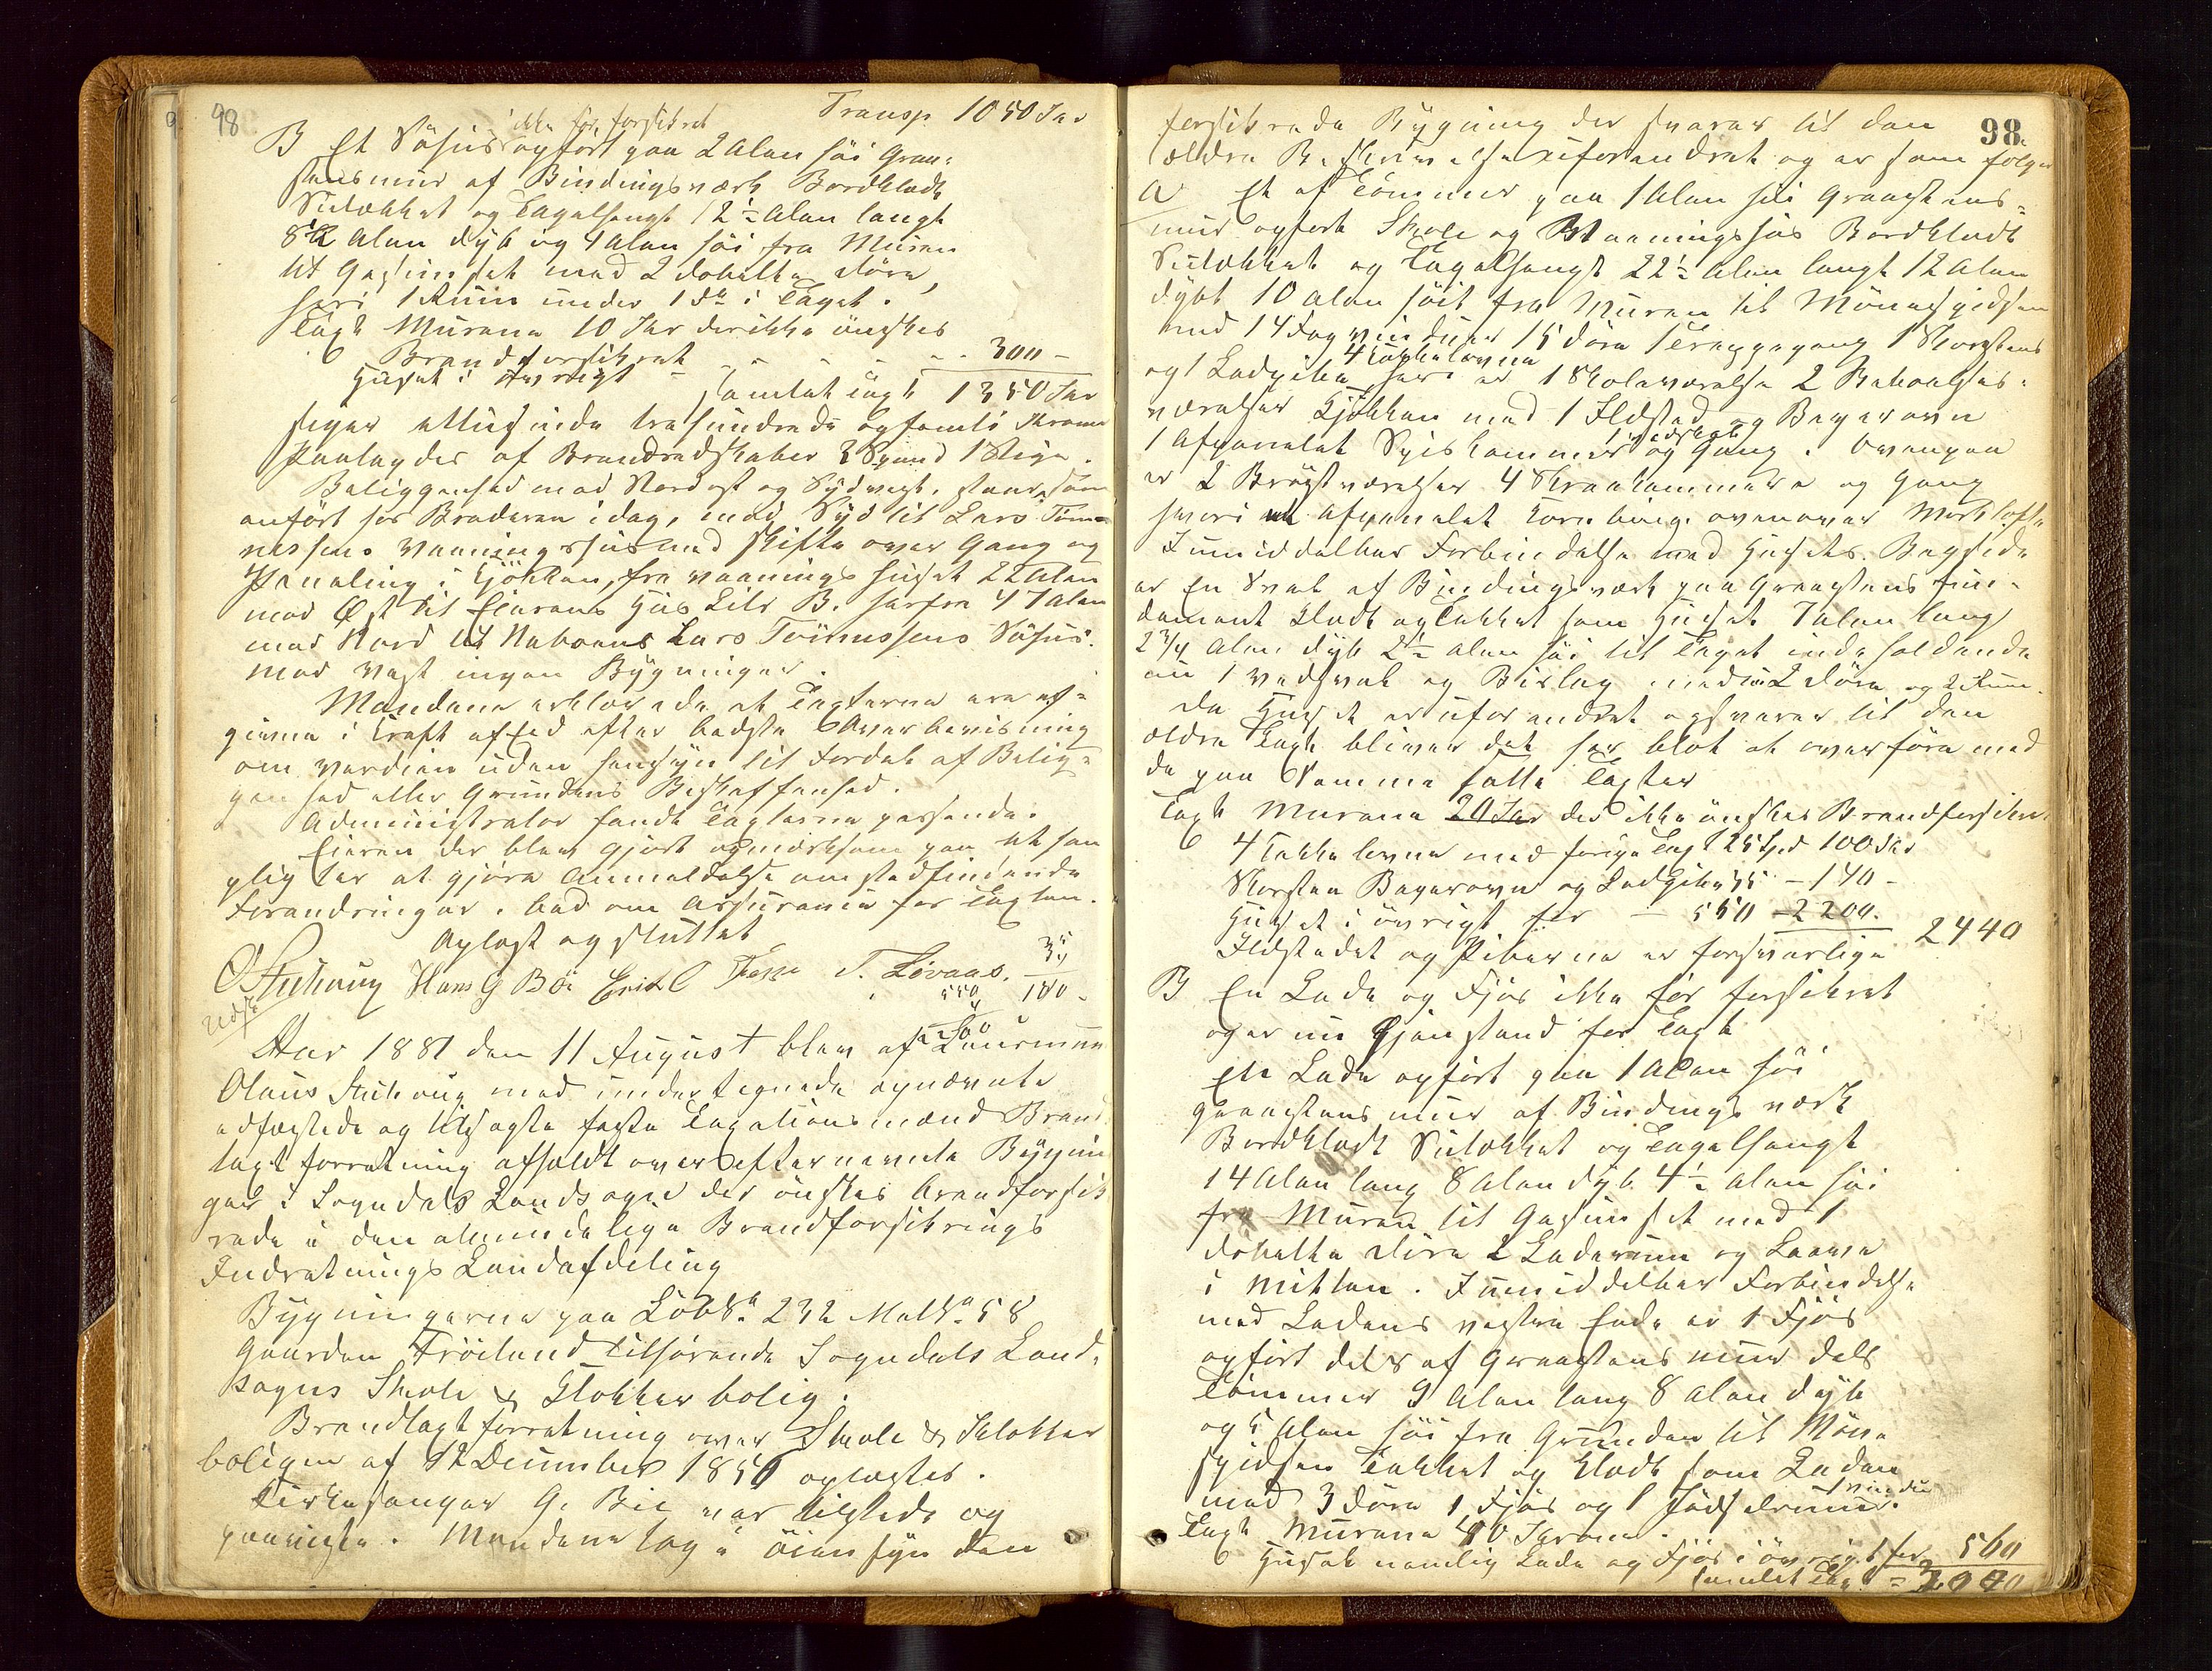 98
Transp 1050 Kr
ikke før forsikret
B Et Søhus opført paa 2 Alen høi Graa-
stensmuur af Bindingsværk Bordklædt
Sutækket og Tagelhængt 12½ Alen langt
8½ Alen dyb og 4 Alen høi fra Muren
til Gesimset med 2 dobelte Døre,
heri 1 Rum under 1 do i Taget.
Taxt Murene 10 Kr der ikke ønskes
Brandforsikret
Huset i øvrigt - - - 300 -
samlet Taxt 1350 Kr
siger ettusinde trehundrede og femti Kroner
Paalagdes af Brandredskaber 2 Spand 1 Stige.
Beliggenhed mod Nordost og Sydvest, som
anført for Broderen idag, mod Syd til Lars Tøn-
nessens Vaaningshus med skifte over Gang og
Paneling i Kjøkken, fra vaaningshuset 22 Alen
mod Øst til Eierens Hus Litr B. herfra 47 Alen
mod Nord til Naboens Lars Tønnessens Søhus.
mod Vest ingen Bygninger.
Mændene erklærede at Taxterne ere af-
givne i Kraft af Eed efter bedste Overbevisning
om værdien uden hensyn til Fordel af Belig-
genhed eller Grundens Beskaffenhed.
Administrator fandt Taxterne passende.
Eieren der blev gjort opmærksom paa at han
pligter at gjøre Anmeldelse om stedfindende
Forandringer, bad om Assurance for Taxten.
Oplæst og sluttet
O Stuhoug Hans G Bøe Erik T. Løvaas.
35
4
140 -
550
4
2200
Udst
Aar 1881 den 11 August blev af Lensmann
Olaus Stuhoug med undertegnede opnævnte
edfæstede og tilsagte faste Taxationsmænd Brand
taxtforretning afholdt over efternævnte Bygnin
ger i Sogndals Landsogn der ønskes brandforsik
rede i den almindelige Brandforsikrings
Indretnings Landafdeling
Bygningerne paa LøbN. 232 MatN. 58
Gaarden Frøiland tilhørende Sogndals Land-
sogns Skole & Klokkerbolig.
Brandtaxtforretning over Skole & Klokker
boligen af 12 December 1850 oplæstes.
Kirkesanger G. Bie var tilstede og
paaviste. Mændene tog i Øiensyn den
98.
forsikrede Bygning der svarer til den
ældre Beskrivelse uforandret og er som følger
A Et af Tømmer paa 1 Alen høi Graastens-
mur opført Skole og Vaaningshus Bordklædt
Sutækket og Tagelhængt 22½ Alen langt 12 Alen
dybt 10 Alen høit fra Muren til Mønespidsen
med 14 Fag vinduer 15 Døre 1 Trappegang 1 Skorsten
4 Kakkelovne
og 1 Ladpibe heri er 1 Skoleværelse 2 Beboelses-
værelser Kjøkken med 1 Ildsted og Bagerovn
1 Afpanelet Spiskammer og Gang. Ovenpaa
er 2 Brystværelser 4 Skraakammere og Gang
hvori et Afpanelet Kornbing. ovenover Mørkloft
Immiddelbar Forbindelse med Husets Bagside
er En Sval af Bindingsværk paa Graastens fun-
dament Klædt og Tækket som Huset 7 Alen lang
2¾ Alen dyb 2½ Alen høi til Taget indeholdende
nu 1 Vedsval og Bislag med 2 Døre og 2 Rum.
Da Huset er uforandret og svarer til den
ældre Taxt bliver det her blot at overføre med
de paa samme satte Taxter
Taxt Murene 20 Kr der ikke ønskes Brandforsikret
4 Kakkelovne med forrige Taxt 25 Spd 100 Kr
Skorsten Bagerovn og Ladpibe 35 - 140 -
Huset i øvrigt før - 550 - 2200. 2440
Ildstedet og Piberne er forsvarlige
B En Lade og Fjøs ikke før forsikret
og er nu Gjenstand for Taxt
En Lade opført paa 1 Alen høi
Graastensmuur af Bindingsværk
Bordklædt Sutækket og Tagelhængt
14 Alen lang 8 Alen dyb 4½ Alen høi
fra Muren til Gesimset med 1
dobelte Døre 2 Laderum og Laave
i Mitten. Immiddelbar Forbindelse
med Ladens vestre Ende er 1 Fjøs
opført dels af Graastensmuur dels
Tømmer 9 Alen lang 8 Alen dyb
og 5 Alen høi fra Grunden til Møne
spidsen Tækket og Klædt som Laden
1 vindu
med 3 Døre 1 Fjøs og 1 Gjødselrum.
Taxt Murene 40 Kroner.
Huset nemlig Lade og Fjøs i øvrigt for 560
samlet Taxt = 3000